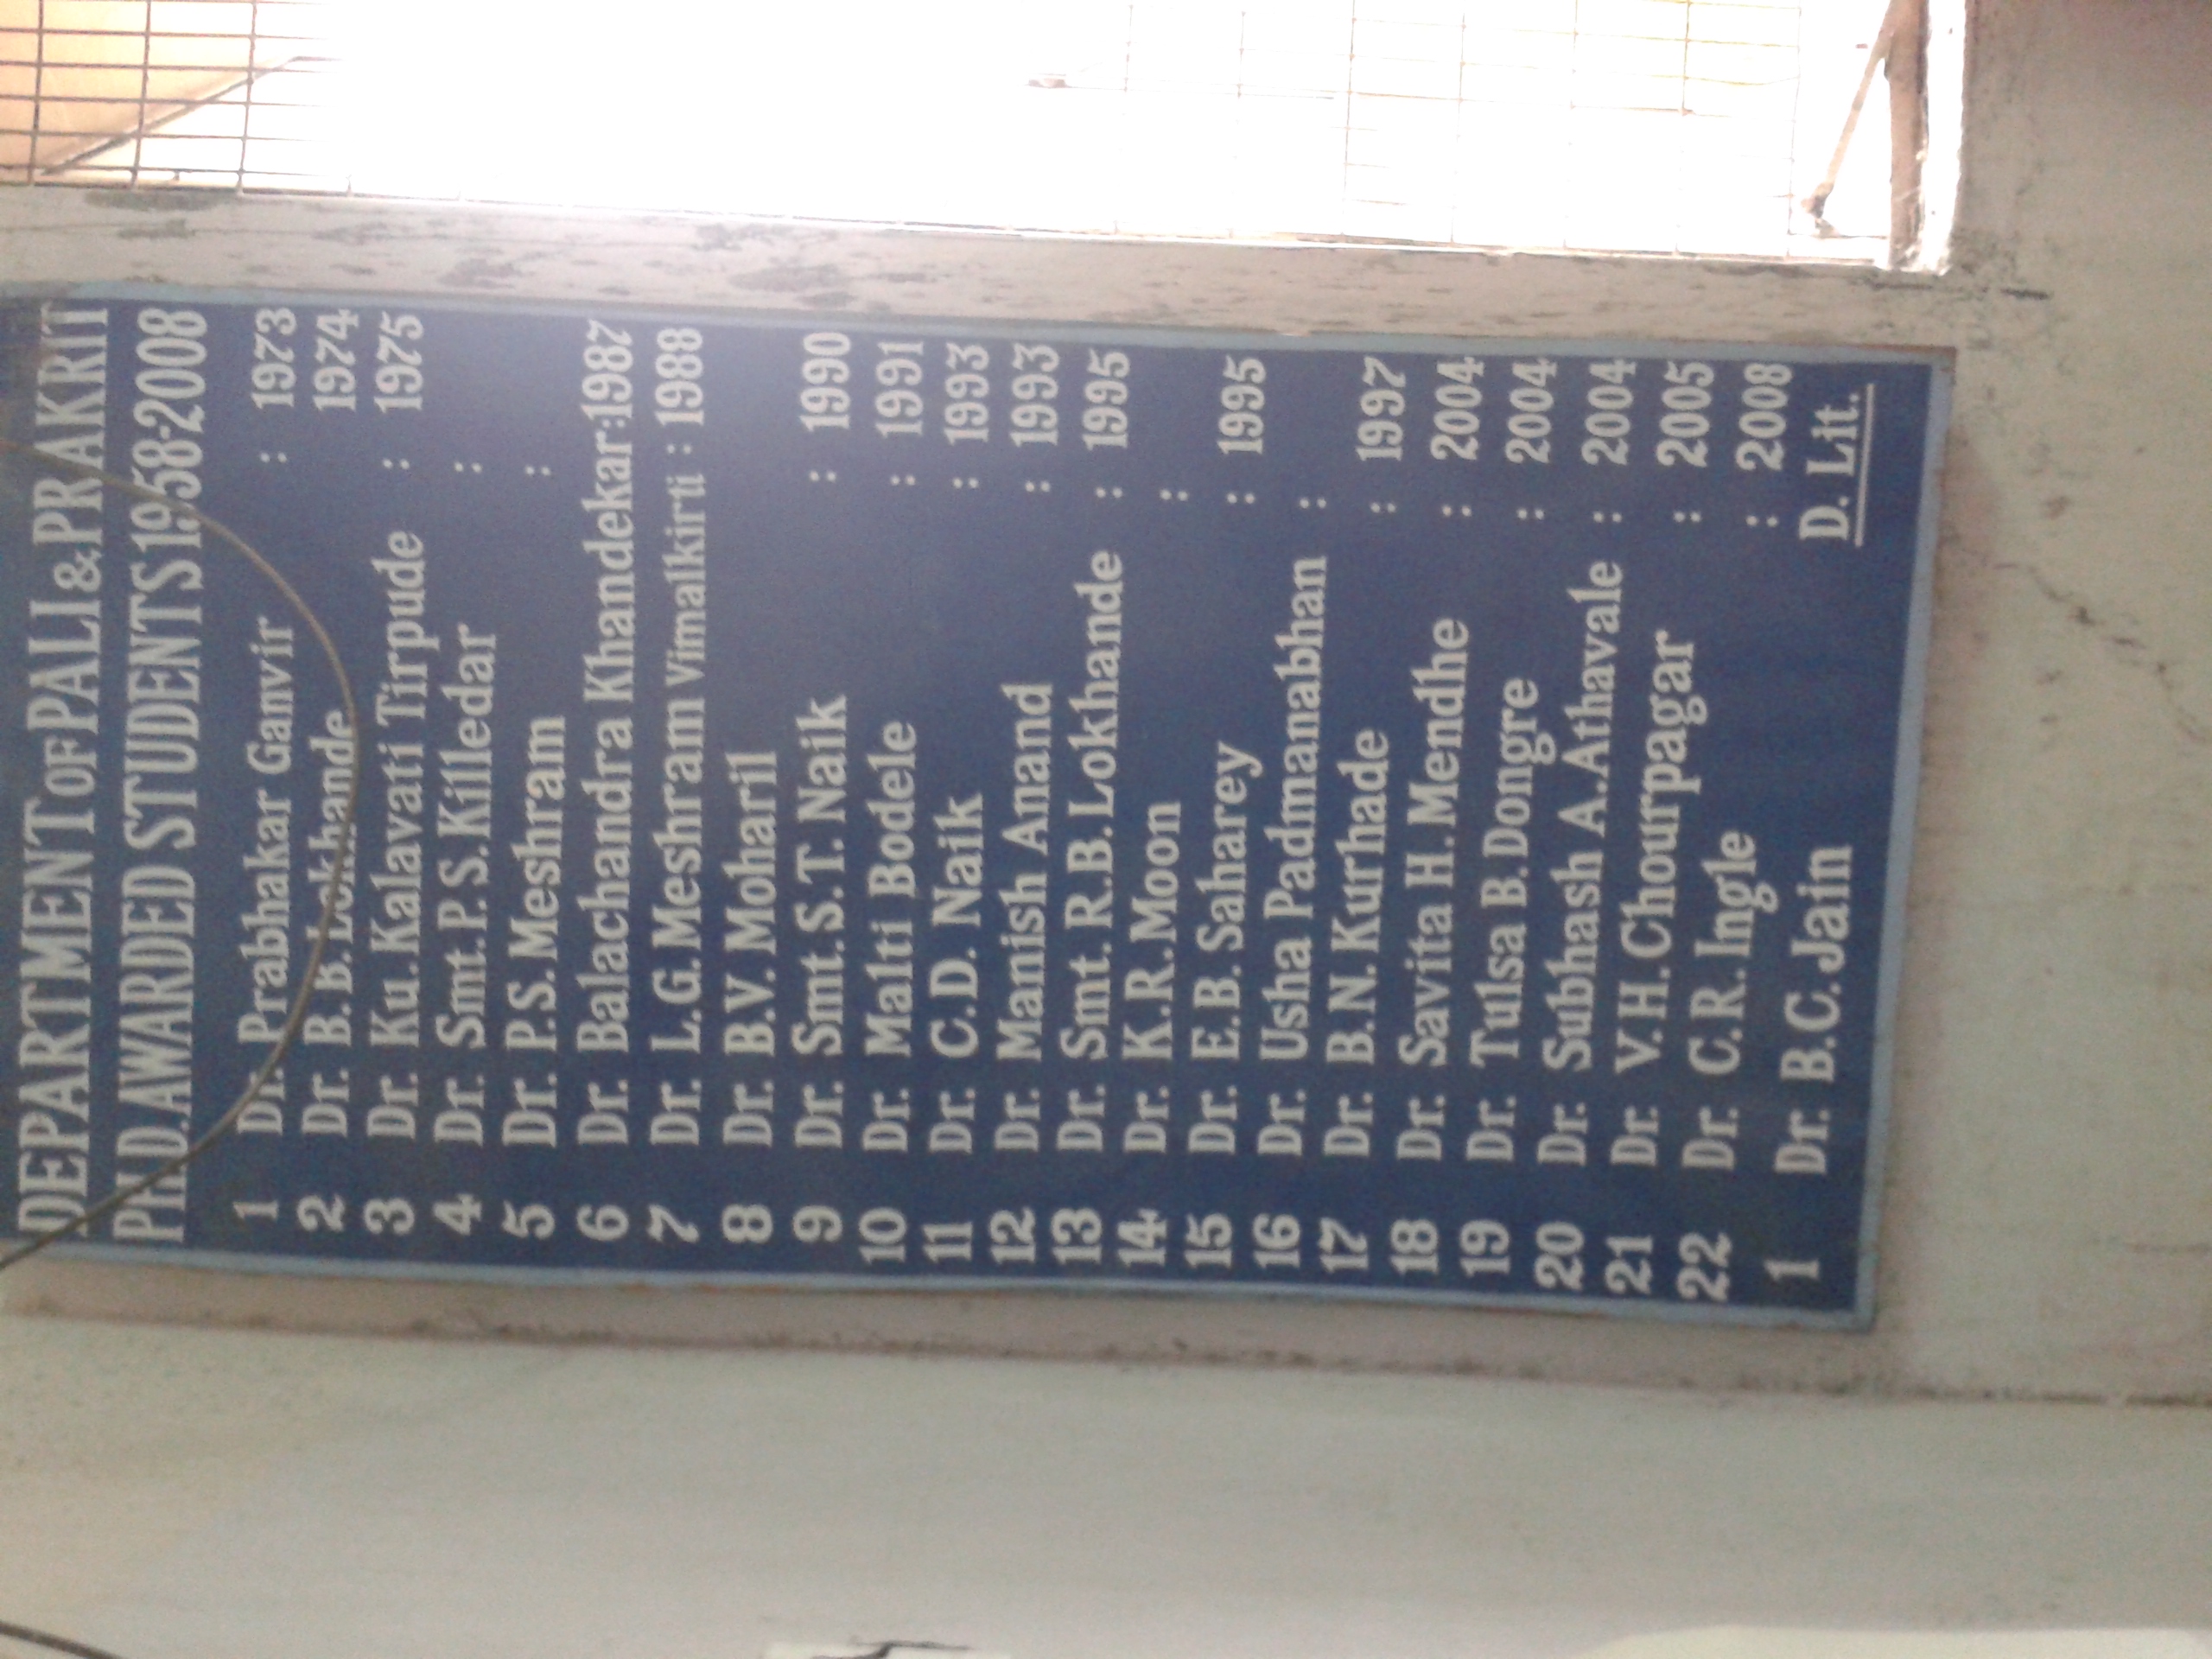 DEPARTMENT OF PALI & PRAKRIT
PH.D. AWARDED STUDENTS 1958-2008
1 Dr. Prabhakar Ganvir : 1973
2 Dr. B. B. Lokhande 1974
3 Dr. Ku. Kalavati Tirpude : 1975
4 Dr. Smt. P. S. Killedar :
5 Dr. P.S. Meshram :
6 Dr. Balachandra Khandekar :1987
7 Dr. L.G. Meshram Vimalkirti : 1988
8 Dr. B.V. Moharil
9 Dr. Smt. S.T. Naik : 1990
10 Dr. Malti Bodele : 1991
11 Dr. C.D. Naik : 1993
12 Dr. Manish Anand : 1993
13 Dr. Smt. R.B. Lokhande : 1995
14 Dr. K.R. Moon :
15 Dr. E.B. Saharey : 1995
16 Dr. Usha Padmanabhan :
17 Dr. B.N. Kurhade : 1997
18 Dr. Savita H. Mendhe : 2004
19 Dr. Tulsa B. Dongre : 2004
20 Dr. Subhash A. Athavale : 2004
21 Dr. V.H. Chourpagar : 2005
22 Dr. C.R. Ingle : 2008
1 Dr. B.C. Jain D. Lit.